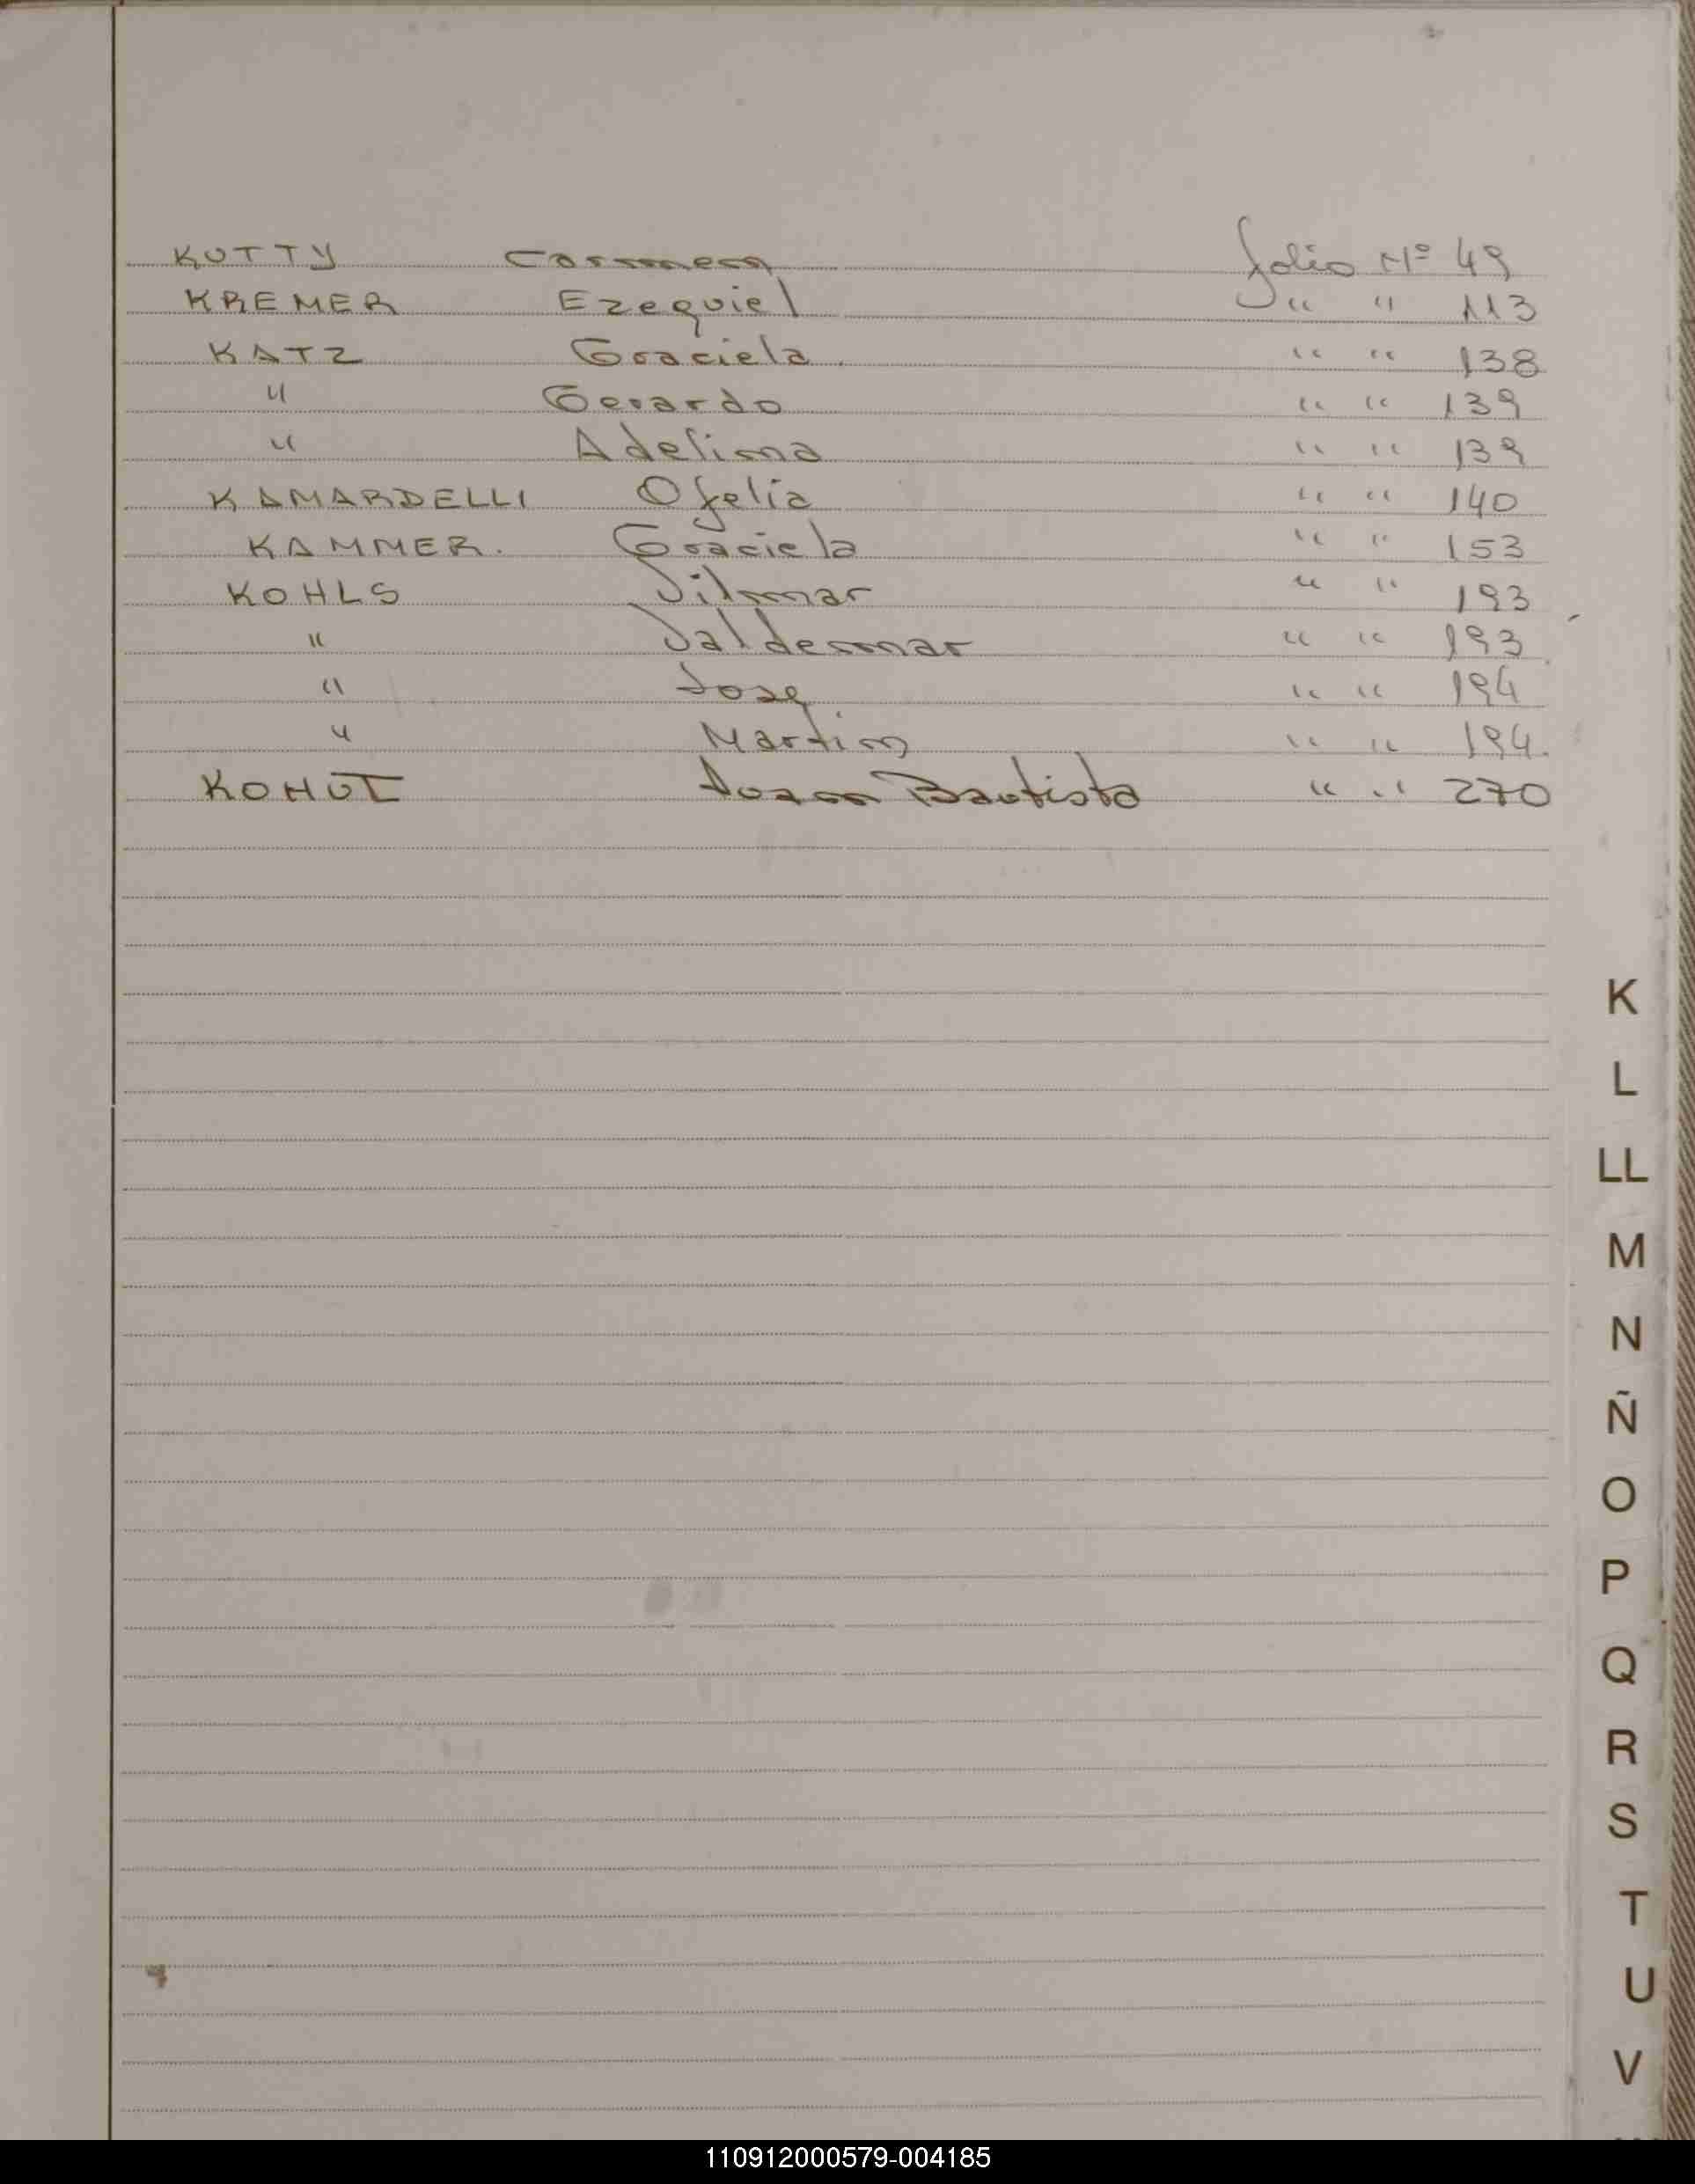 KUTTY Carmen folio Nº 49
KREMER Ezequiel " " 113
KATZ Graciela " " 138
" Gerardo " " 139
" Adelina " " 139
KAMARDELLI Ofelia " " 140
KAMMER. Graciela " " 153
KOHLS Vilmar " " 193
" Valdemar " " 193
" Jose " " 194
" Martin " " 194.
KOHUT Juan Bautista " " 270
K
L
LL
M
N
Ñ
O
P
Q
R
S
T
U
V
110912000579-004185